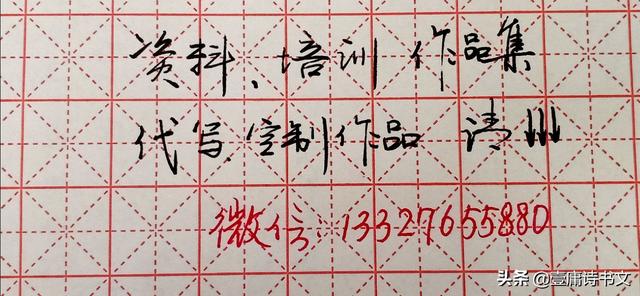 资料、培训 作品集
代写、定制作品 请
微信:13327655880
头条 @壹庸诗书文